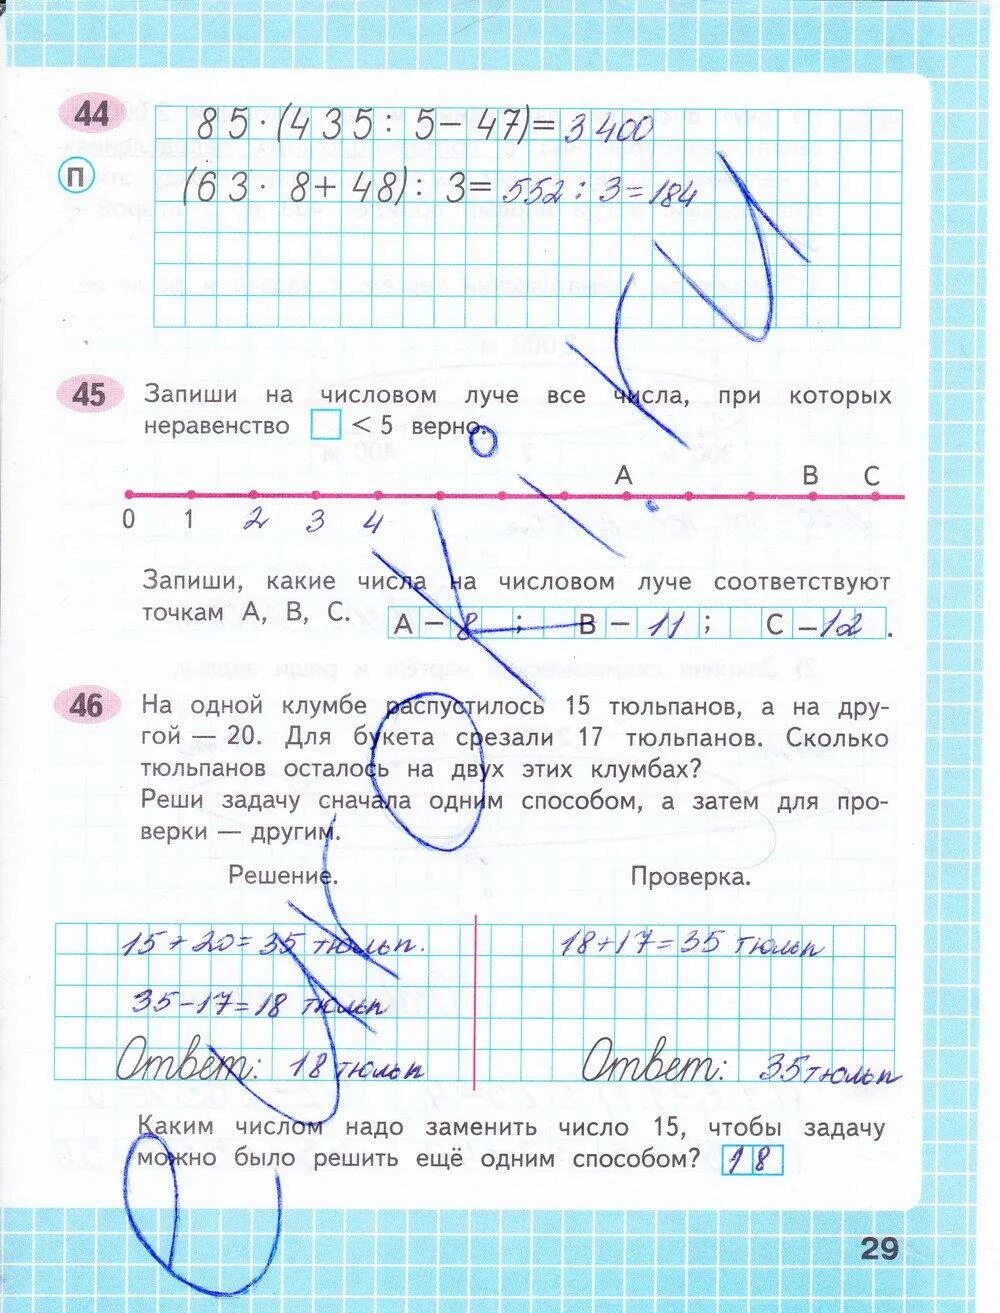 44 85·(435:5-47)=3400
П (63·8+48):3=552:3=184
45 Запиши на числовом луче все числа, при которых
неравенство □ < 5 верно.
A B C
0 1 2 3 4
Запиши, какие числа на числовом луче соответствуют
точкам A, B, C. A – 8 ; B – 11 ; C – 12 .
46 На одной клумбе распустилось 15 тюльпанов, а на дру-
гой — 20. Для букета срезали 17 тюльпанов. Сколько
тюльпанов осталось на двух этих клумбах?
Реши задачу сначала одним способом, а затем для про-
верки — другим.
Решение. Проверка.
15+20=35 тюльп. 18+17=35 тюльп
35-17=18 тюльп
Ответ: 18 тюльп Ответ: 35 тюльп
Каким числом надо заменить число 15, чтобы задачу
можно было решить ещё одним способом? 18
29